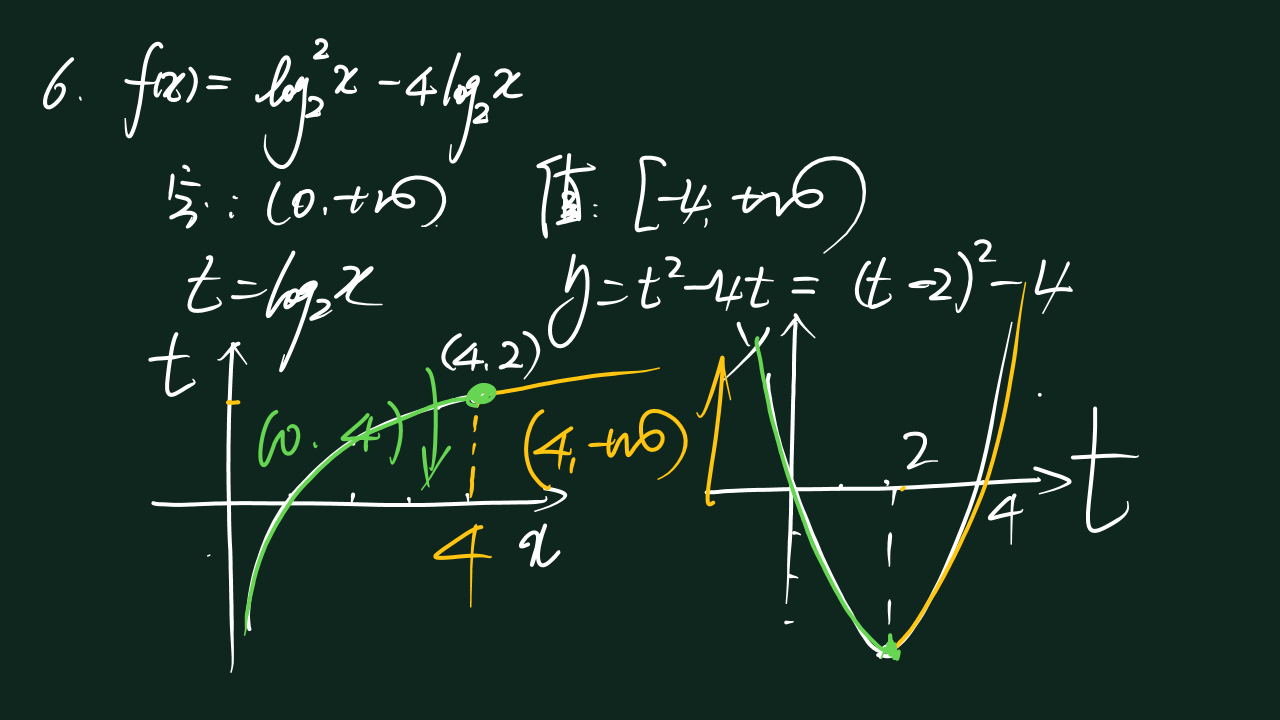 6. f(x)= log₂²x -4log₂x
: (0,+∞) 值: [-4,+∞)
t=log₂x y=t²-4t= (t-2)²-4
t (4,2) y
(0.4) (4,+∞) 2
4 x 4 t